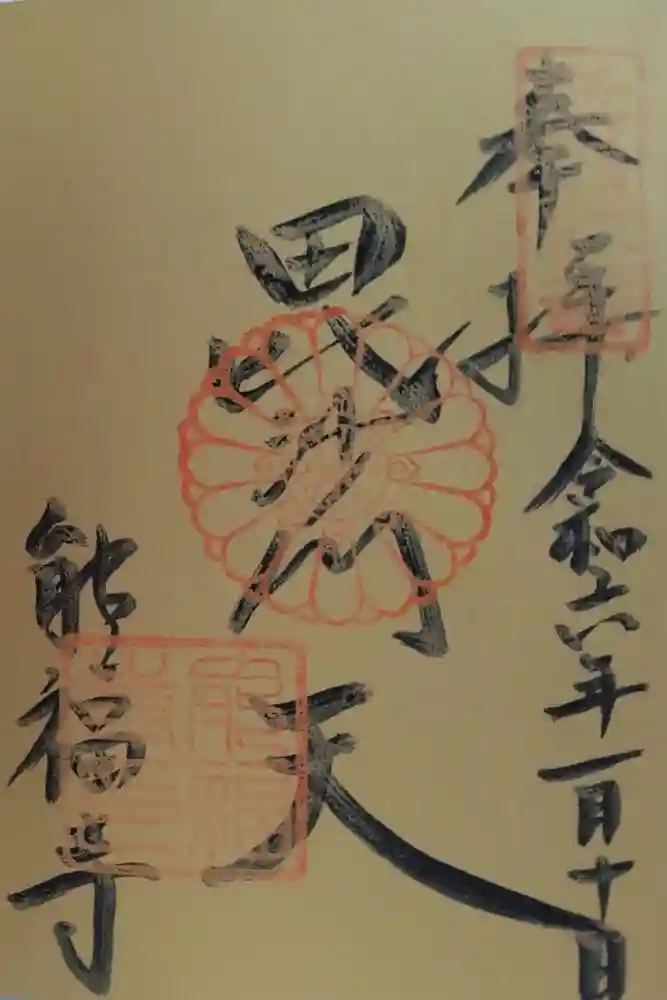 奉拝 令和六年一月十日
毘沙門天
能福寺